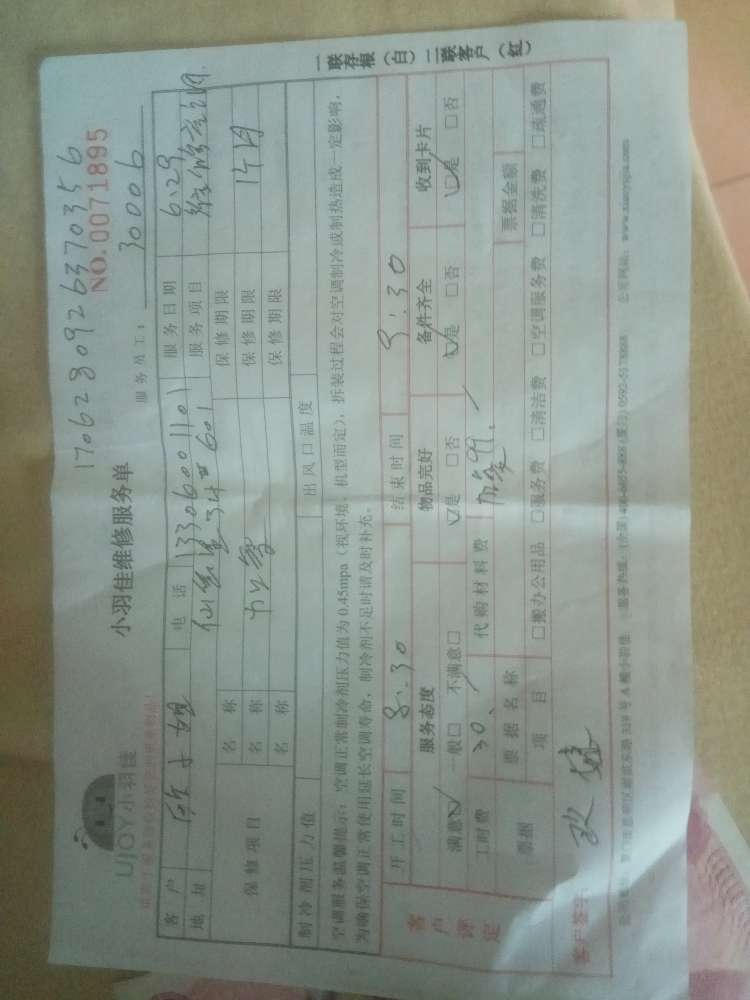 1706280926370356
UJOY小羽佳
小羽佳维修服务单
NO.0071895
服务员工： 30006
客户 小姐 电话 13306001101 服务日期 6.29
地址 34#601 服务项目 维修空调
保修项目 名称 保修期限
名称 保修期限 1个月
名称 保修期限
制冷剂压力值 出风口温度
空调服务温馨提示：空调正常制冷剂压力值为0.45mpa（视环境、机型而定），拆装过程会对空调制冷或制热造成一定影响，
为确保空调正常使用延长空调寿命，制冷剂不足时请及时补充。
客户评定
开工时间 8:30 结束时间 9:30
服务态度 物品完好 备件齐全 收到卡片
满意☑ 一般□ 不满意□ ☑是 □否 ☑是 □否 ☑是 □否
工时费 30. 代购材料费
票据 票据名称 票据金额
项目 □搬办公用品 □服务费 □清洁费 □空调服务费 □清洗费 □疏通费
客户签字：
一联存根（白）二联客户（红）